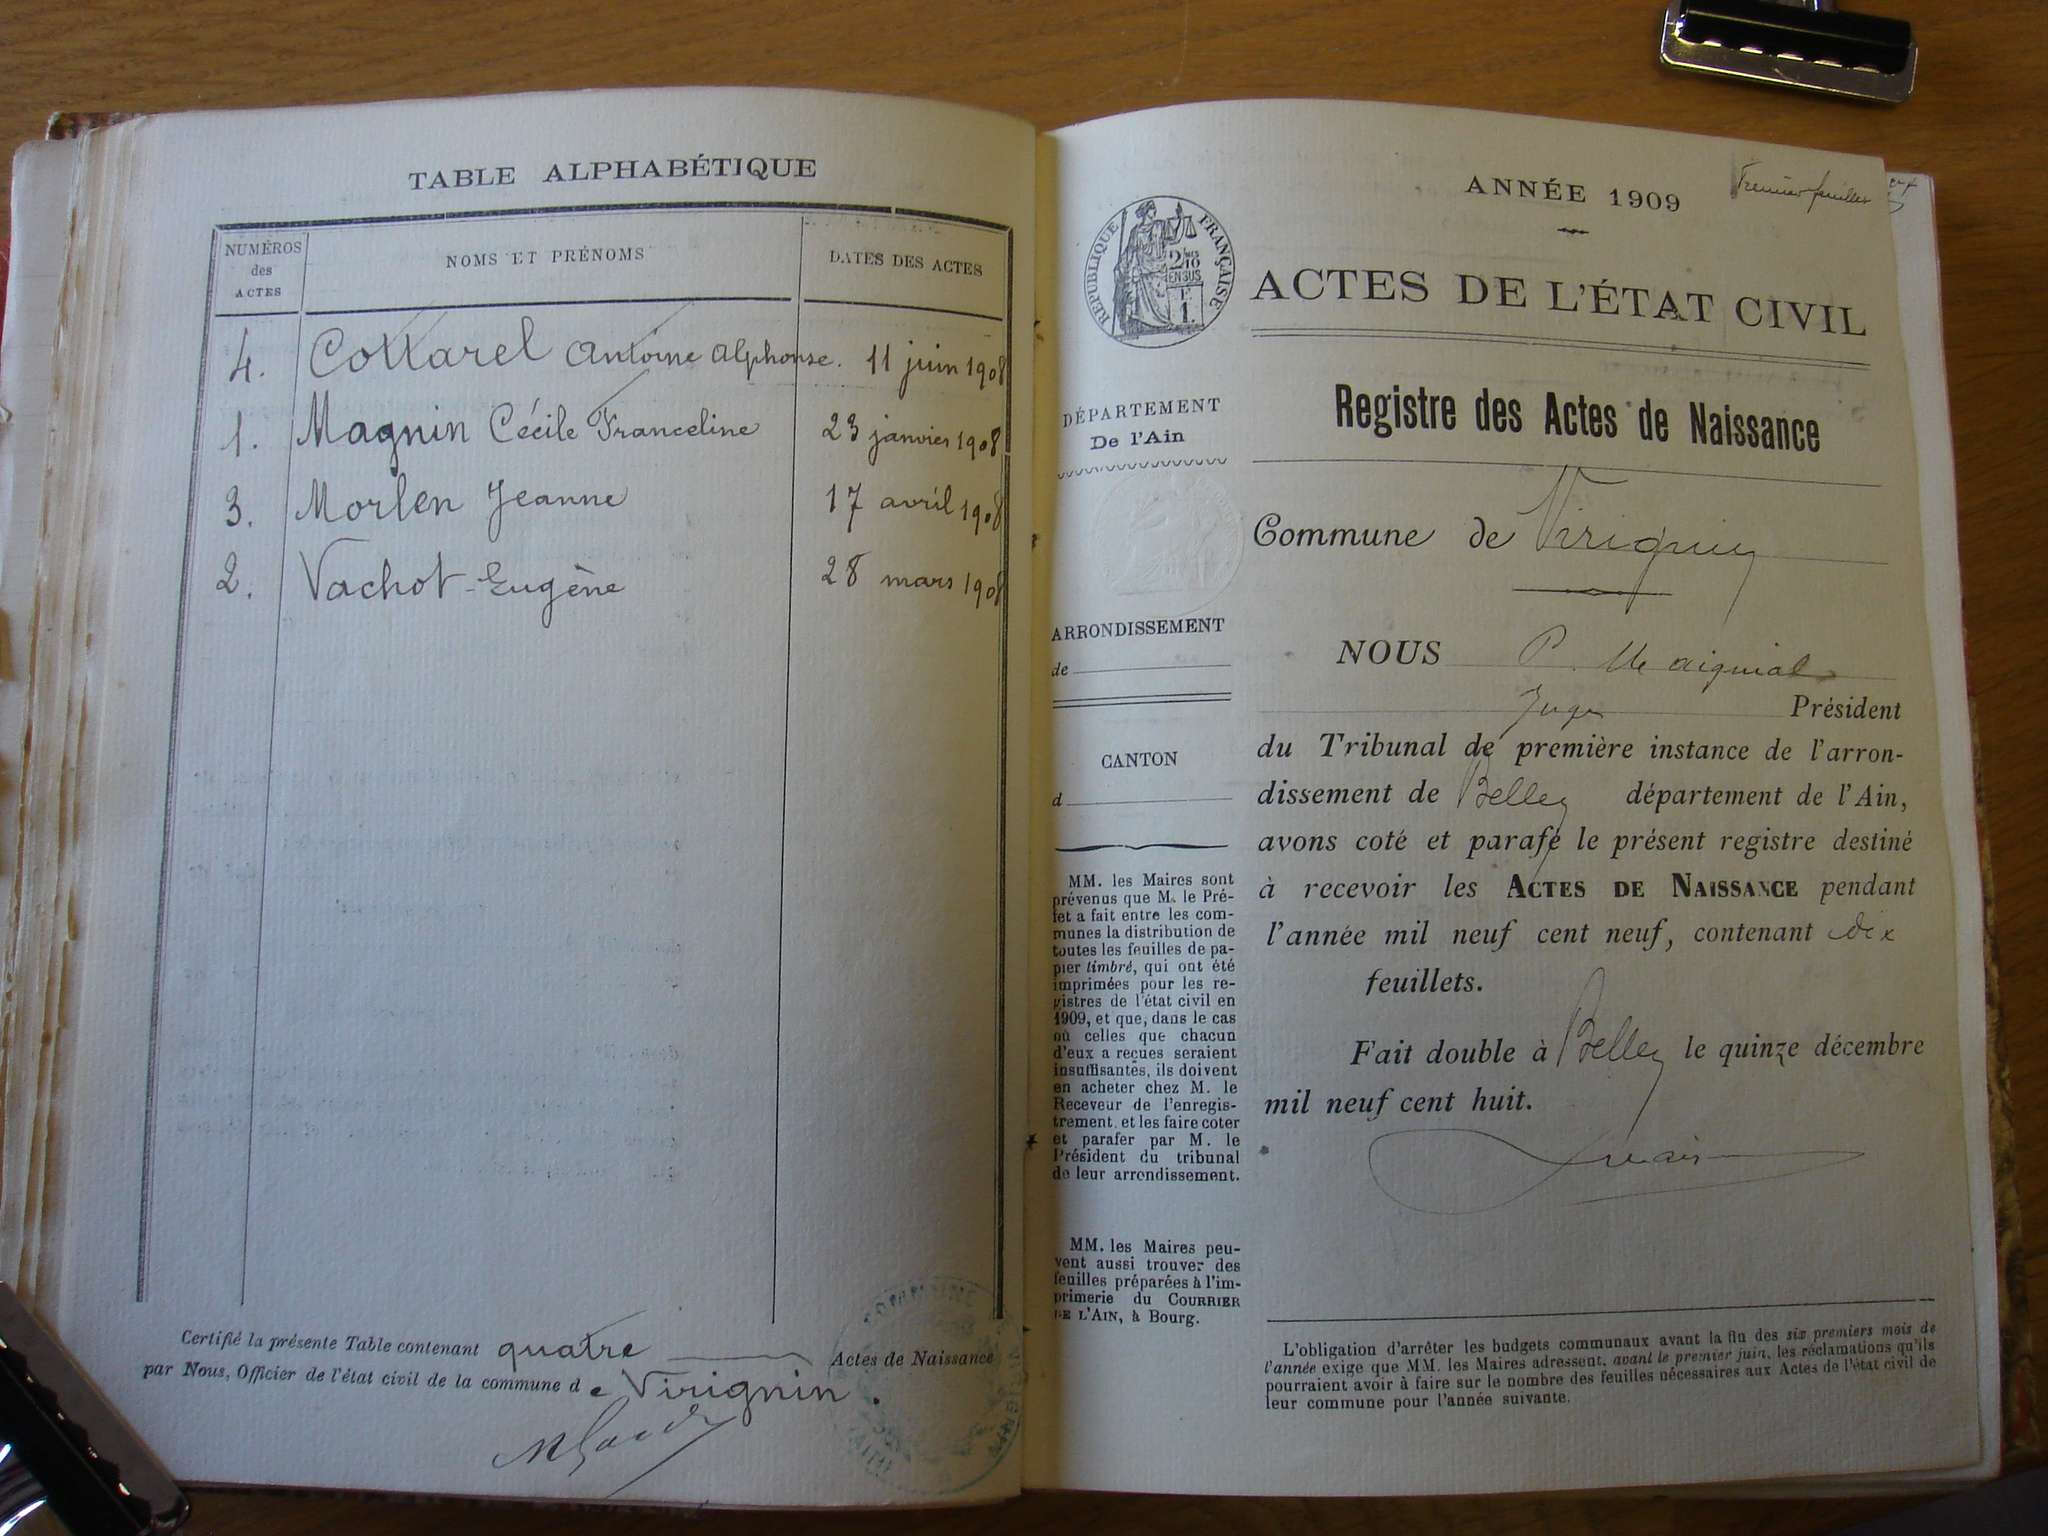 TABLE ALPHABÉTIQUE
NUMÉROS des ACTES NOMS ET PRÉNOMS DATES DES ACTES
4. Cottarel Antoine Alphonse. 11 juin 1908
1. Magnin Cécile Franceline 23 janvier 1908
3. Morlen Jeanne 17 avril 1908
2. Vachot Eugène 28 mars 1908
Certifié la présente Table contenant quatre Actes de Naissance
par Nous, Officier de l'état civil de la commune de Virignin.
ANNÉE 1909
Premier feuillet
RÉPUBLIQUE FRANÇAISE
2/10
EN SUS
1.
ACTES DE L'ÉTAT CIVIL
DÉPARTEMENT
De l'Ain
ARRONDISSEMENT
de
CANTON
d
MM. les Maires sont
prévenus que M. le Pré-
fet a fait entre les com-
munes la distribution de
toutes les feuilles de pa-
pier timbré, qui ont été
imprimées pour les re-
gistres de l'état civil en
1909, et que, dans le cas
où celles que chacun
d'eux a reçues seraient
insuffisantes, ils doivent
en acheter chez M. le
Receveur de l'enregis-
trement, et les faire coter
et parafer par M. le
Président du tribunal
de leur arrondissement.
MM. les Maires peu-
vent aussi trouver des
feuilles préparées à l'im-
primerie du COURRIER
DE L'AIN, à Bourg.
Registre des Actes de Naissance
Commune de Virignin
NOUS P.
Juge Président
du Tribunal de première instance de l'arron-
dissement de Belley département de l'Ain,
avons coté et parafé le présent registre destiné
à recevoir les ACTES DE NAISSANCE pendant
l'année mil neuf cent neuf, contenant dix
feuillets.
Fait double à Belley le quinze décembre
mil neuf cent huit.
L'obligation d'arrêter les budgets communaux avant la fin des six premiers mois de
l'année exige que MM. les Maires adressent, avant le premier juin, les réclamations qu'ils
pourraient avoir à faire sur le nombre des feuilles nécessaires aux Actes de l'état civil de
leur commune pour l'année suivante.